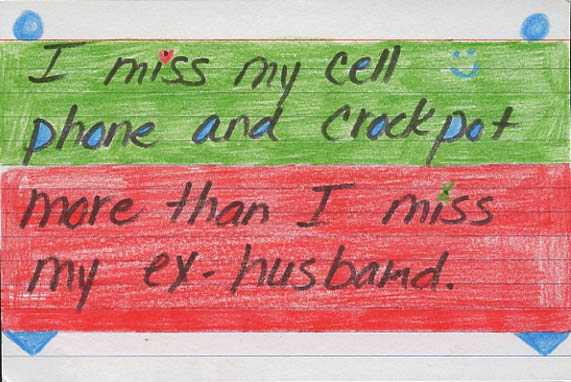 I miss my cell
phone and crockpot
more than I miss
my ex-husband.